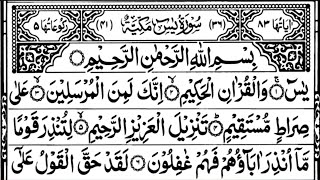 اٰيَاتُهَا ٨٣ (٣٦) سُوْرَةُ يٰسٓ مَكِّيَّةٌ (٤١) رُكُوْعَاتُهَا ٥
بِسْمِ اللّٰهِ الرَّحْمٰنِ الرَّحِيْمِ
يٰسٓ ۚ وَالْقُرْاٰنِ الْحَكِيْمِ ۙ اِنَّكَ لَمِنَ الْمُرْسَلِيْنَ ۙ عَلٰى
صِرَاطٍ مُّسْتَقِيْمٍ ؕ تَنْزِيْلَ الْعَزِيْزِ الرَّحِيْمِ ۙ لِتُنْذِرَ قَوْمًا
مَّاۤ اُنْذِرَ اٰبَآؤُهُمْ فَهُمْ غٰفِلُوْنَ ۝ لَقَدْ حَقَّ الْقَوْلُ عَلٰۤى